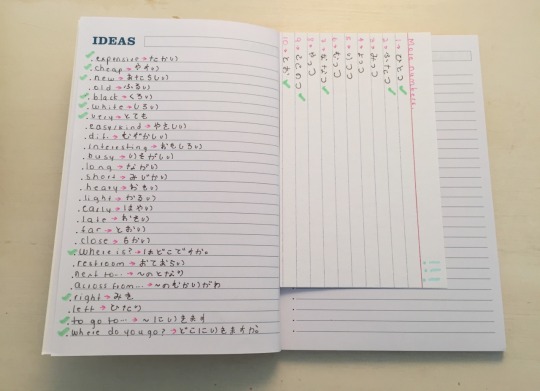 IDEAS
. expensive → たかい
. cheap → やすい
. new → あたらしい
. old → ふるい
. black → くろい
. white → しろい
. very → とても
. easy/kind → やさしい
. dif. → むずかしい
. interesting → おもしろい
. busy → いそがしい
. long → ながい
. short → みじかい
. heavy → おもい
. light → かるい
. early → はやい
. late → おそい
. far → とおい
. close → ちかい
. Where is? → はどこですか。
. restroom → おてあらい
. next to... → ~のとなり
. across from... → ~のむかいがわ
. right → みぎ
. left → ひだり
. to go to... → ~にいきます
. Where do you go? → どこにいきますか。
More numbers:
1 → ひとつ
2 → ふたつ
3 → みっつ
4 → よっつ
5 → いつつ
6 → むっつ
7 → ななつ
8 → やっつ
9 → ここのつ
10 → とお